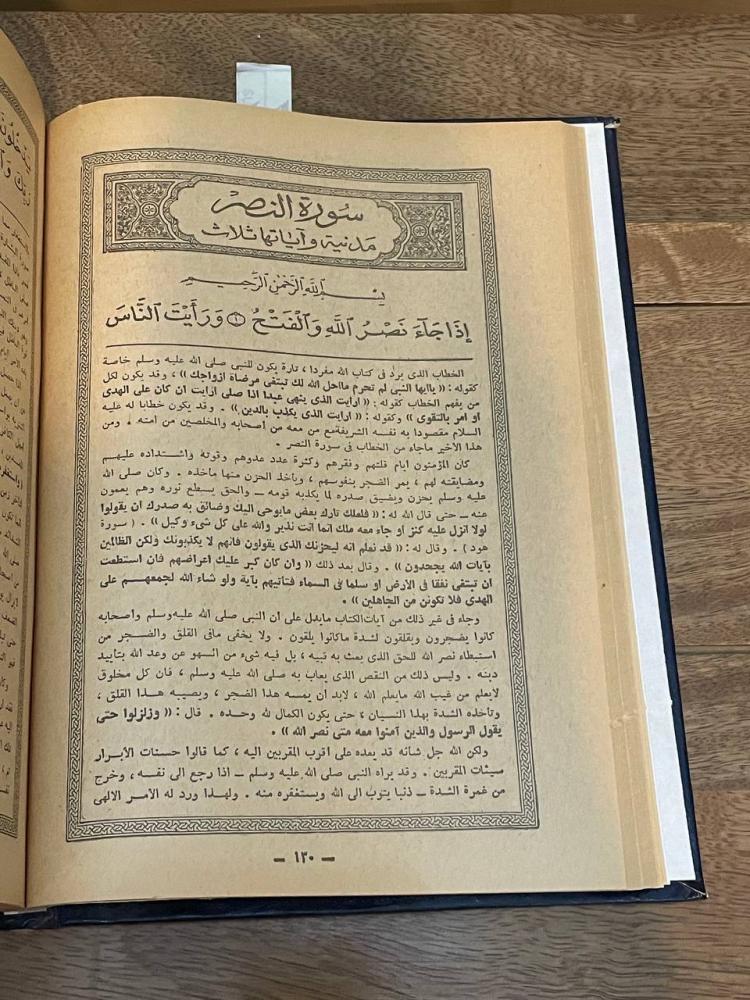 سورة النصر
مدنية وآياتها ثلاث
بسم الله الرحمن الرحيم
إِذَا جَآءَ نَصْرُ اللَّهِ وَالْفَتْحُ ١ وَرَأَيْتَ النَّاسَ
الخطاب الذى يرد فى كتاب الله مفردا ، تارة يكون للنبى صلى الله عليه وسلم خاصة
كقوله : « ياايها النبى لم تحرم مااحل الله لك تبتغى مرضاة ازواجك » ، وقد يكون لكل
من يفهم الخطاب كقوله : « ارايت الذى ينهى عبدا اذا صلى ارايت ان كان على الهدى
او امر بالتقوى » وكقوله : « ارايت الذى يكذب بالدين » . وقد يكون خطابا له عليه
السلام مقصودا به نفسه الشريفة مع من معه من أصحابه والمخلصين من أمته . ومن
هذا الاخير ماجاء من الخطاب فى سورة النصر .
كان المؤمنون ايام قلتهم وفقرهم وكثرة عدد عدوهم وقوته واشتداده عليهم
ومضايقته لهم ، يمر الضجر بنفوسهم ، وياخذ الحزن منها ماخذه . وكان صلى الله
عليه وسلم يحزن ويضيق صدره لما يكذبه قومه – والحق يسطع نوره وهم يعمون
عنه – حتى قال الله له : « فلعلك تارك بعض مايوحى اليك وضائق به صدرك ان يقولوا
لولا انزل عليه كنز او جاء معه ملك انما انت نذير والله على كل شىء وكيل » . ( سورة
هود ) . وقال له : « قد نعلم انه ليحزنك الذى يقولون فانهم لا يكذبونك ولكن الظالمين
بآيات الله يجحدون » . وقال بعد ذلك « وان كان كبر عليك اعراضهم فان استطعت
ان تبتغى نفقا فى الارض او سلما فى السماء فتاتيهم بآية ولو شاء الله لجمعهم على
الهدى فلا تكونن من الجاهلين » .
وجاء فى غير ذلك من آيات الكتاب مايدل على أن النبى صلى الله عليه وسلم وأصحابه
كانوا يضجرون ويقلقون لشدة ماكانوا يلقون . ولا يخفى مافى القلق والضجر من
استبطاء نصر الله للحق الذى بعث به نبيه ، بل فيه شىء من السهو عن وعد الله بتاييد
دينه . وليس ذلك من النقص الذى يعاب به صلى الله عليه وسلم ، فان كل مخلوق
لايعلم من غيب الله مايعلم الله ، لابد ان يمسه هذا الضجر ، ويصيبه هذا القلق ،
وتأخذه الشدة بهذا النسيان ، حتى يكون الكمال لله وحده . قال : « وزلزلوا حتى
يقول الرسول والذين آمنوا معه متى نصر الله » .
ولكن الله جل شانه قد يعده على اقرب المقربين اليه ، كما قالوا حسنات الأبرار
سيئات المقربين . وقد يراه النبى صلى الله عليه وسلم – اذا رجع الى نفسه ، وخرج
من غمرة الشدة – ذنبا يتوب الى الله ويستغفره منه . ولهذا ورد له الأمر الالهى
– ١٣٠ –